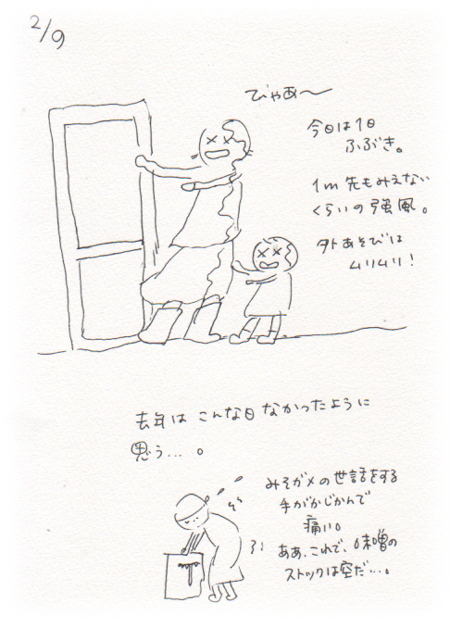 2/9
びゃあ〜
今日は1日
ふぶき。
1m先もみえない
くらいの強風。
外あそびは
ムリムリ!
去年は こんな日 なかったように
思う…。
みそガメの世話をする
手がかじかんで
痛い。
ああ、これで、味噌の
ストックは空だ…。